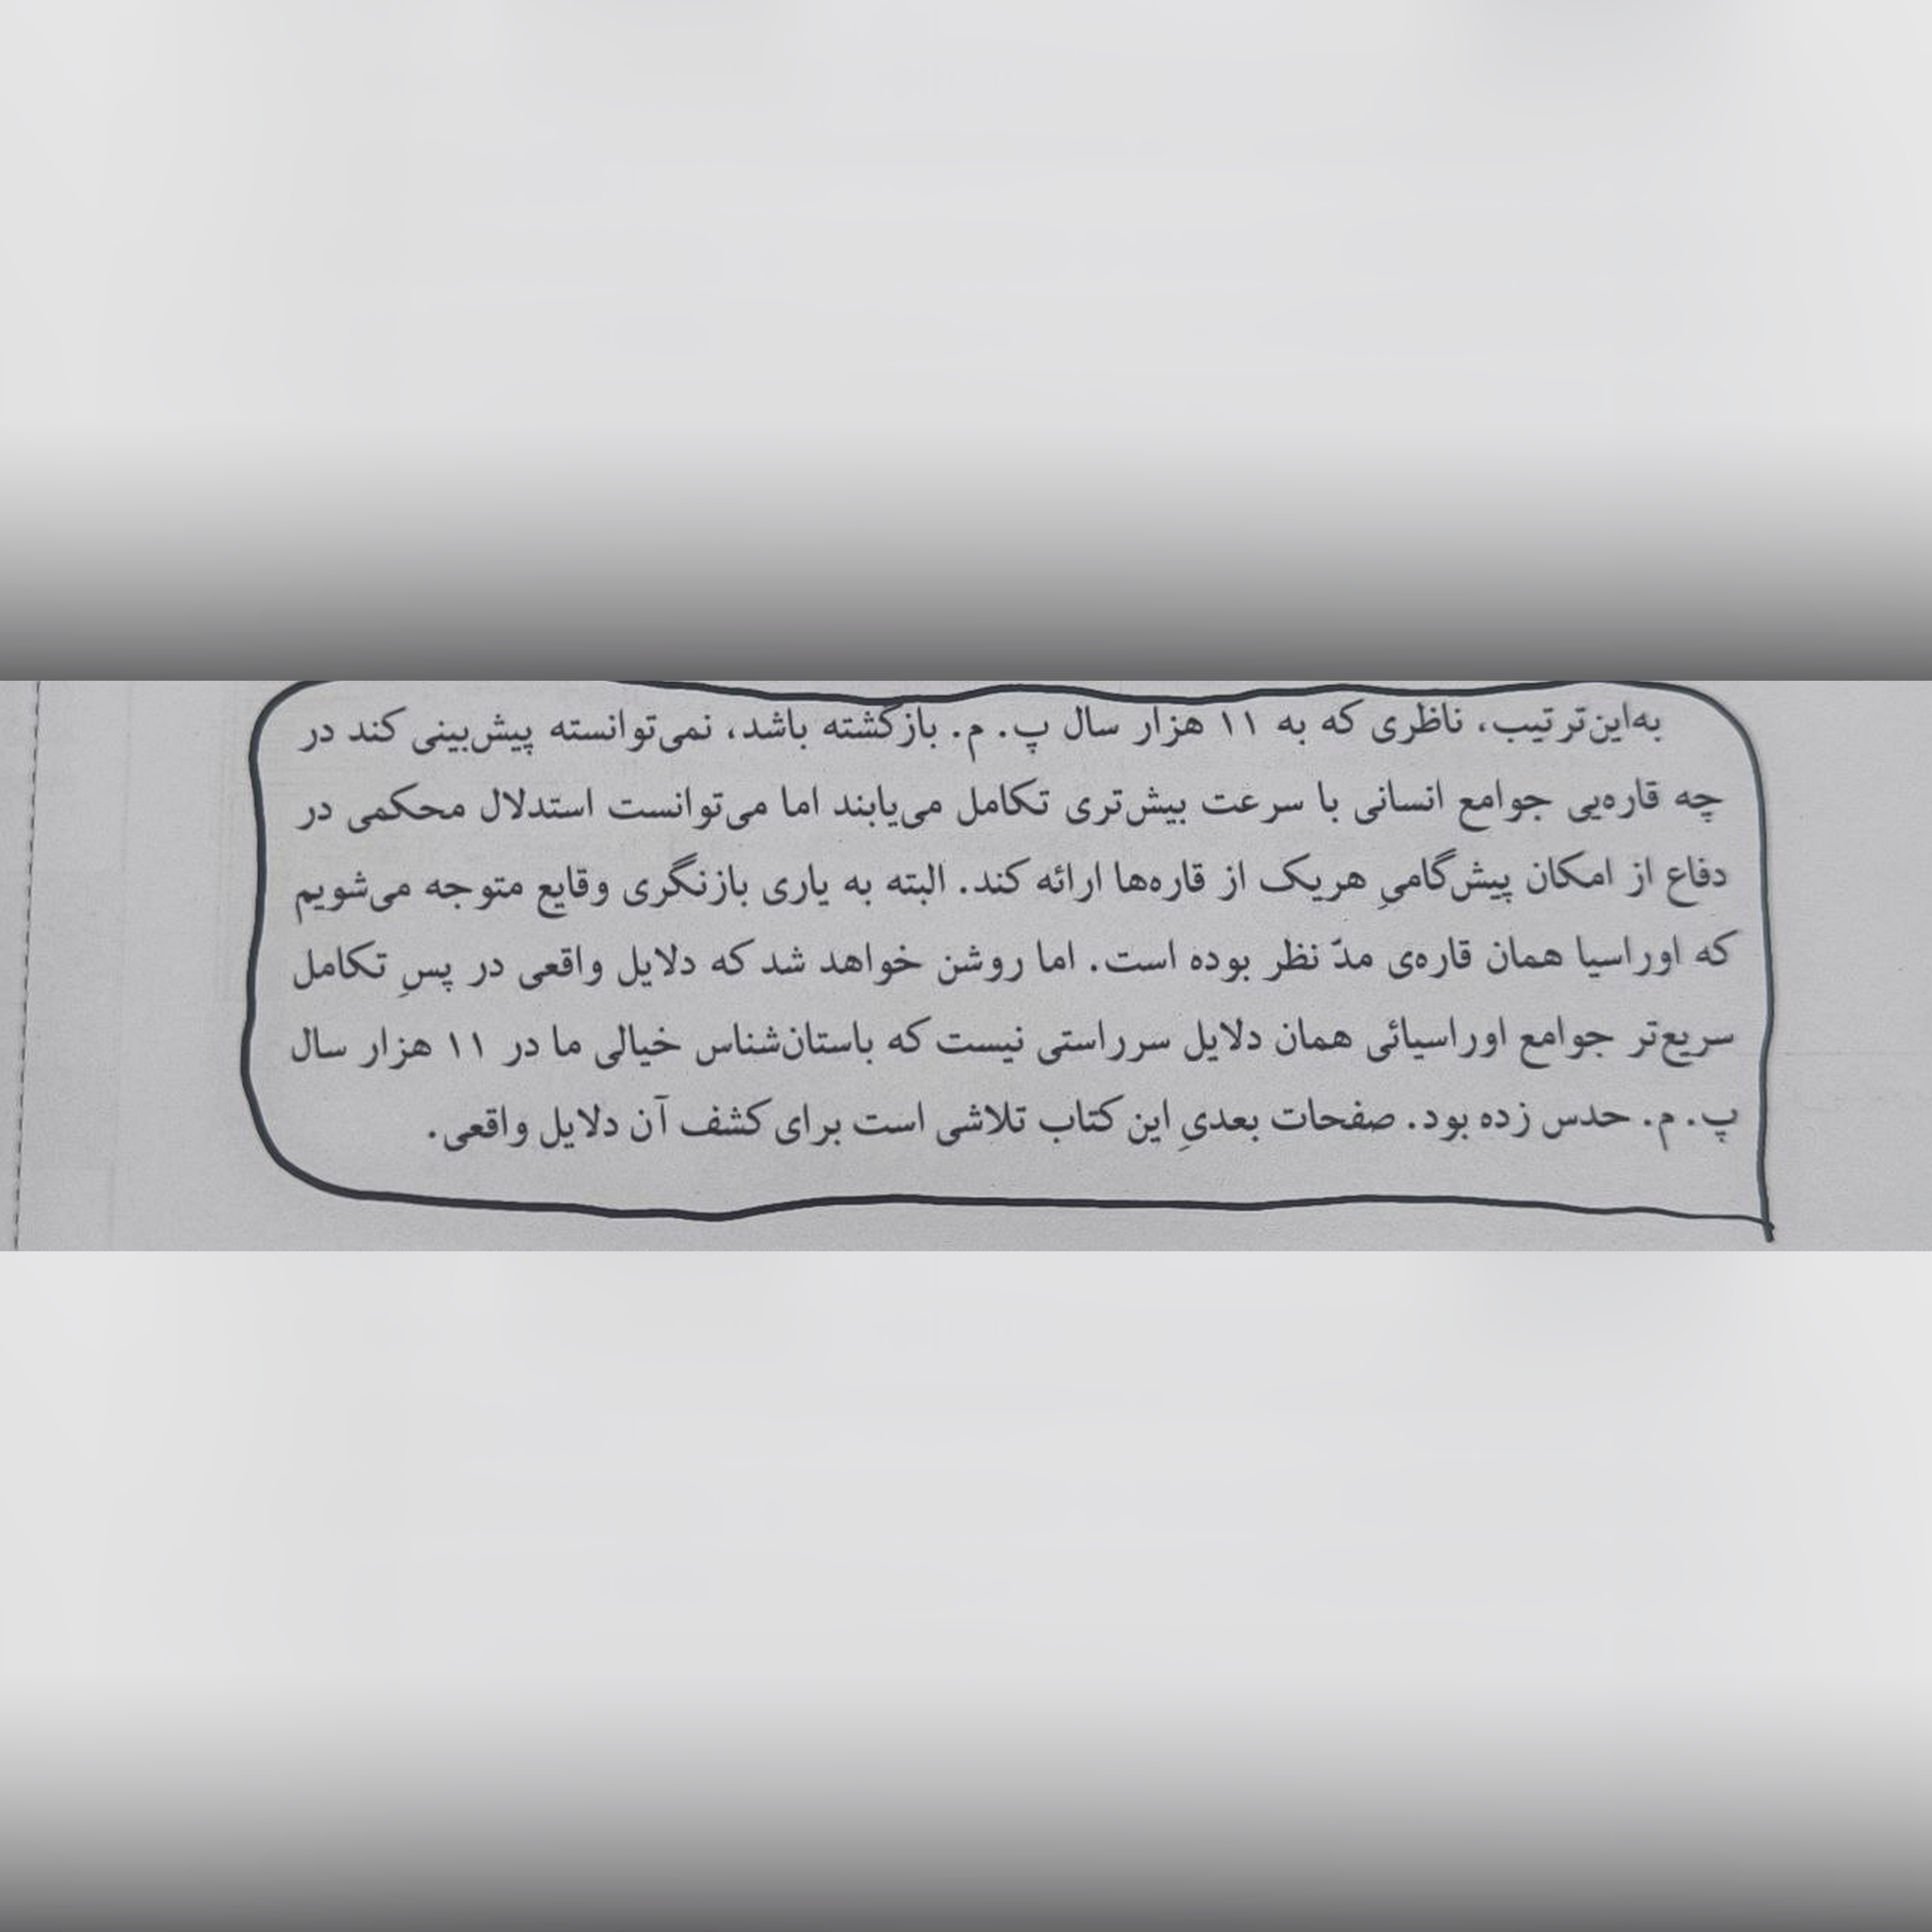 به‌این‌ترتیب، ناظری که به ۱۱ هزار سال پ. م. بازگشته باشد، نمی‌توانسته پیش‌بینی کند در
چه قاره‌یی جوامع انسانی با سرعت بیش‌تری تکامل می‌یابند اما می‌توانست استدلال محکمی در
دفاع از امکان پیش‌گامیِ هریک از قاره‌ها ارائه کند. البته به یاری بازنگری وقایع متوجه می‌شویم
که اوراسیا همان قاره‌ی مدّ نظر بوده است. اما روشن خواهد شد که دلایل واقعی در پسِ تکامل
سریع‌تر جوامع اوراسیائی همان دلایل سرراستی نیست که باستان‌شناس خیالی ما در ۱۱ هزار سال
پ. م. حدس زده بود. صفحات بعدیِ این کتاب تلاشی است برای کشف آن دلایل واقعی.